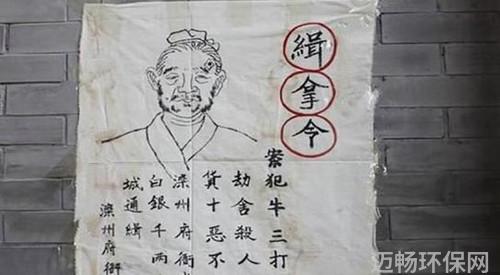 緝拿令
案犯牛三打
劫舍殺人
貨十惡不
滦州府衙
白銀千两
城通緝
滦州府衙
迈畅环保网